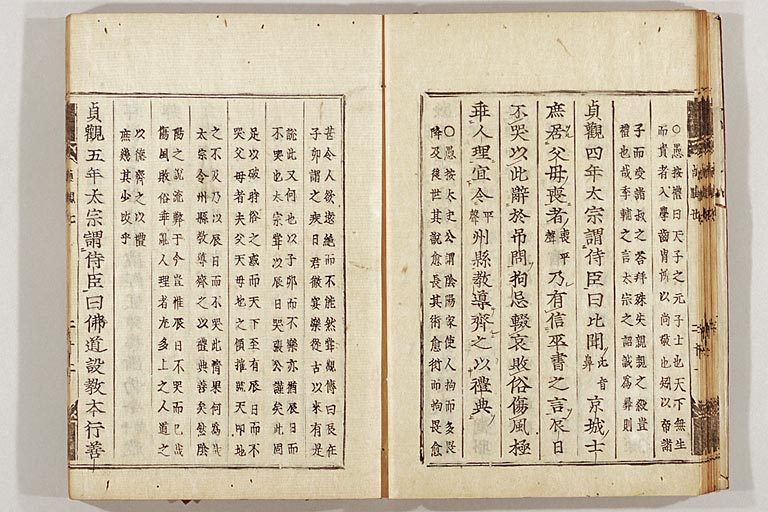 ○愚按禮曰天子之元子士也天下無生
而貴者入學齒胄所以尚敬也矧以帝諸
子而受諸叔之荅拜殊失親親之殺豈
禮也哉季輔之言太宗之詔誠為彝則
貞觀四年太宗謂侍臣曰比聞比音鼻京城士
庶居父毋喪者喪平聲乃有信巫書之言辰日
不哭以此辭於吊問拘忌輟哀敗俗傷風極
乖人理宜令平聲州縣教導齊之以禮典
○愚按太史公謂陰陽家使人拘而多畏
降及後世其說愈長其術愈衍而拘畏愈
甚令人欲遂絕而不能然傳曰辰在
子卯謂之疾日君徹宴樂從古以來有是
說此又何也以子卯而不樂亦猶辰日而
不哭也太宗以辰日哭襄公謹矣此固
足以破時俗之惑而天下至有辰日而不
哭父母者夫父天母地之傾摧號天叩地
之不及乃以辰日而不哭此果何為哉
太宗令州縣教導齊之以禮典善矣然陰
陽之說流弊于今豈惟辰日不哭而已哉
傷風敗俗乖亂人理者尤多上之人道之
以德齊之以禮
庶幾其少改乎
貞觀五年太宗謂侍臣曰佛道設教本行善